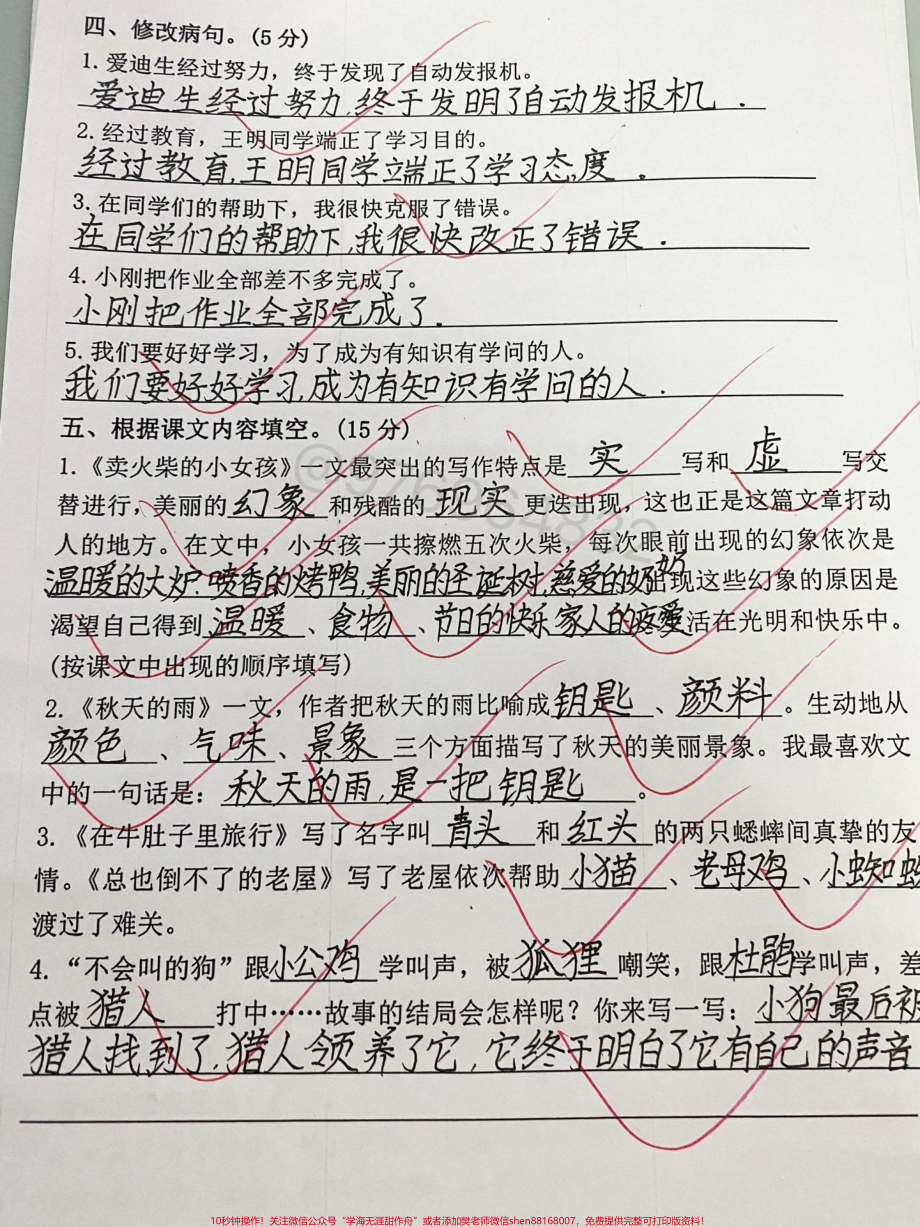 四、修改病句。(5分)
1. 爱迪生经过努力，终于发现了自动发报机。
爱迪生经过努力,终于发明了自动发报机.
2. 经过教育，王明同学端正了学习目的。
经过教育,王明同学端正了学习态度。
3. 在同学们的帮助下，我很快克服了错误。
在同学们的帮助下,我很快改正了错误.
4. 小刚把作业全部差不多完成了。
小刚把作业全部完成了.
5. 我们要好好学习，为了成为有知识有学问的人。
我们要好好学习,成为有知识有学问的人.
五、根据课文内容填空。(15分)
1.《卖火柴的小女孩》一文最突出的写作特点是 实 写和 虚 写交
替进行，美丽的 幻象 和残酷的 现实 更迭出现，这也正是这篇文章打动
人的地方。在文中，小女孩一共擦燃五次火柴，每次眼前出现的幻象依次是
温暖的大炉.喷香的烤鸭,美丽的圣诞树,慈爱的奶奶 出现这些幻象的原因是
渴望自己得到 温暖 、食物 、节日的快乐 家人的疼爱 活在光明和快乐中。
(按课文中出现的顺序填写)
2.《秋天的雨》一文，作者把秋天的雨比喻成 钥匙 、颜料 。生动地从
颜色 、气味 、景象 三个方面描写了秋天的美丽景象。我最喜欢文
中的一句话是：秋天的雨,是一把钥匙 。
3.《在牛肚子里旅行》写了名字叫 青头 和 红头 的两只蟋蟀间真挚的友
情。《总也倒不了的老屋》写了老屋依次帮助 小猫 、老母鸡 、小蜘蛛
渡过了难关。
4.“不会叫的狗”跟 小公鸡 学叫声，被 狐狸 嘲笑，跟 杜鹃 学叫声，差
点被 猎人 打中……故事的结局会怎样呢？你来写一写：小狗最后被
猎人找到了,猎人领养了它,它终于明白了它有自己的声音
10秒钟操作！关注微信公众号“学海无涯甜作舟”或者添加樊老师微信shen88168007，免费提供完整可打印版资料！